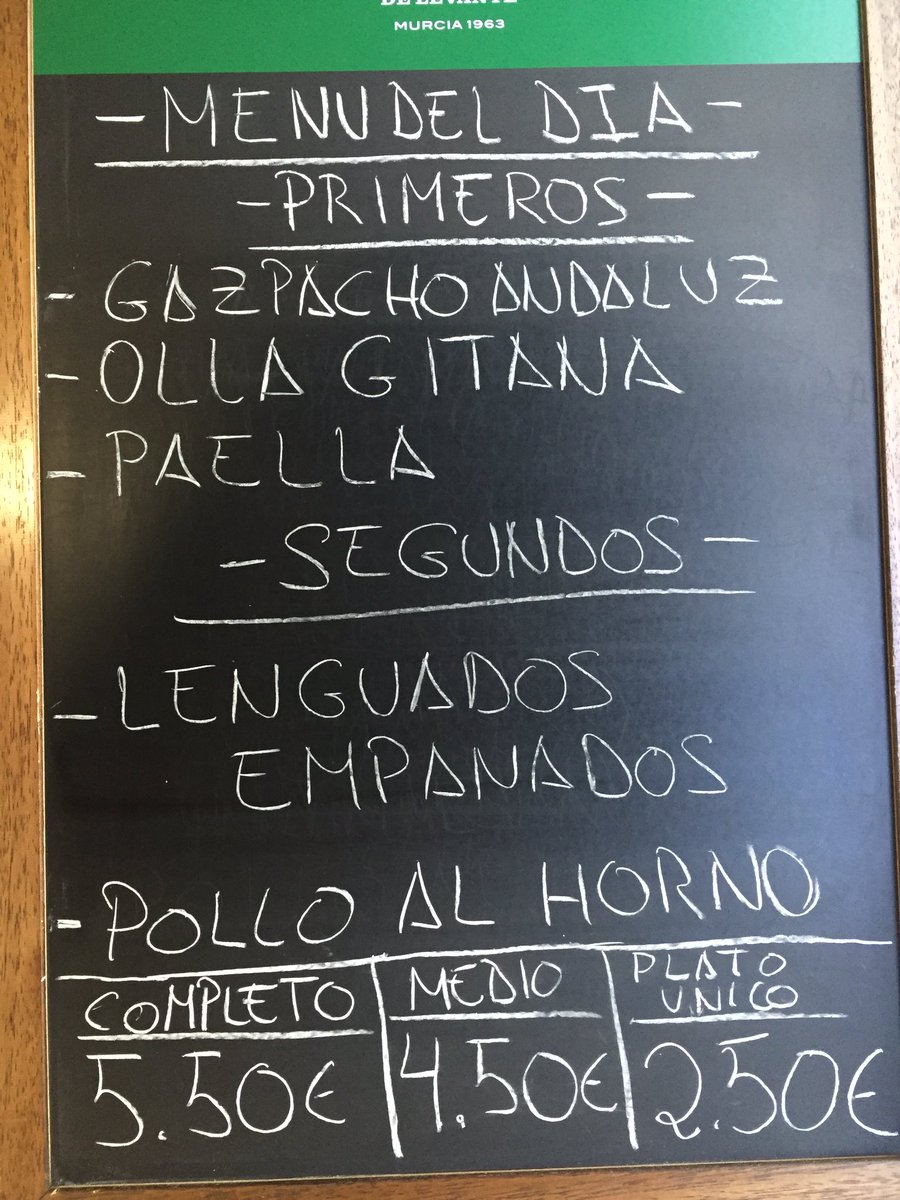 DE LEVANTE
MURCIA 1963
- MENU DEL DIA -
- PRIMEROS -
- GAZPACHO ANDALUZ
- OLLA GITANA
- PAELLA
- SEGUNDOS -
- LENGUADOS
EMPANADOS
- POLLO AL HORNO
COMPLETO MEDIO PLATO UNICO
5.50€ 4.50€ 2.50€